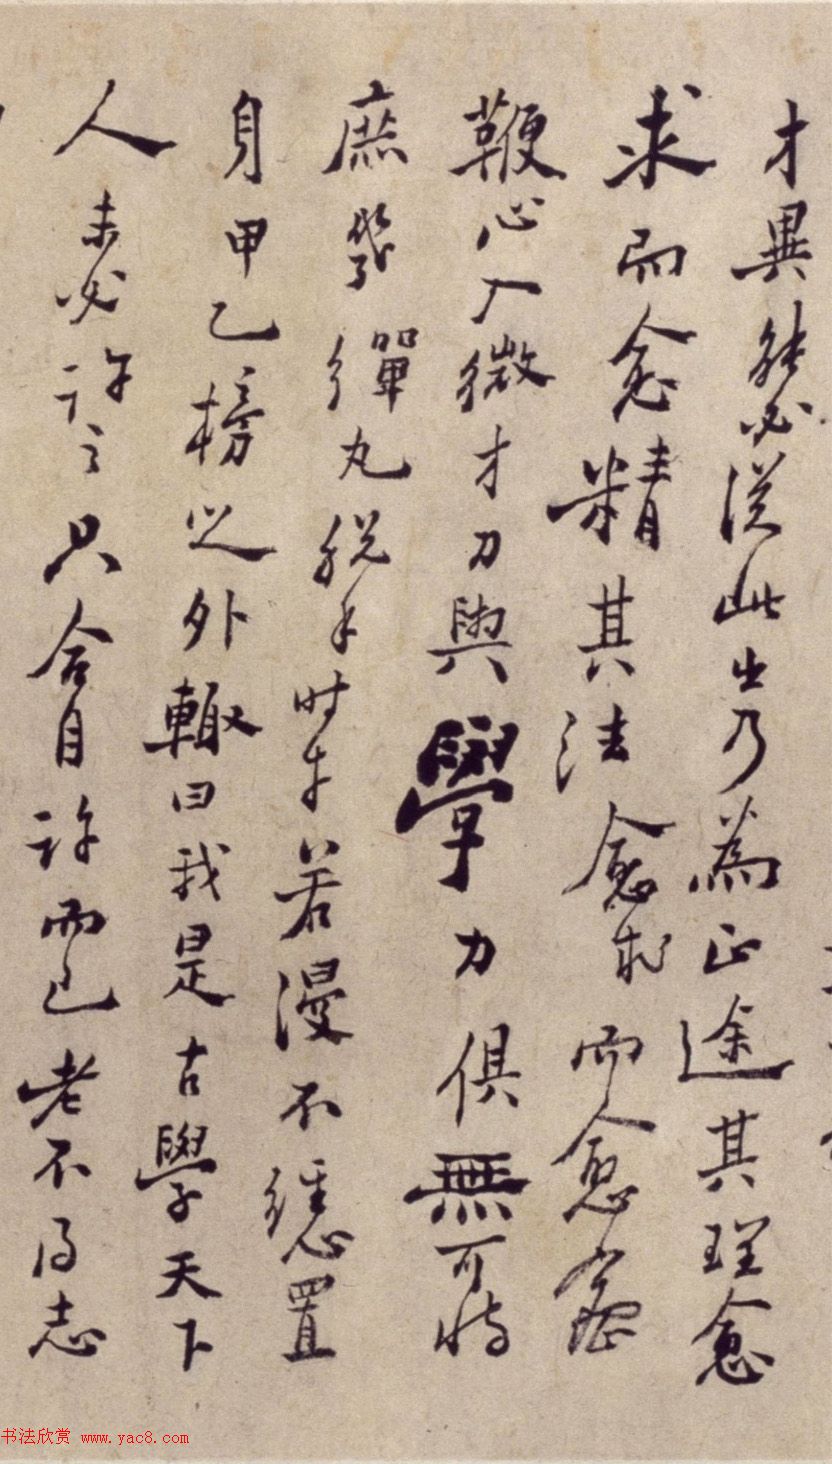 才異能必從此出乃為正途其理愈
求而愈精其法愈求而愈密
鞭心入微才力與學力俱無可恃
庶幾彈丸脫手時乎若漫不經置
身甲乙榜之外輒曰我是古學天下
人未必許之只合自許而已老不得志
书法欣赏 www.yac8.com